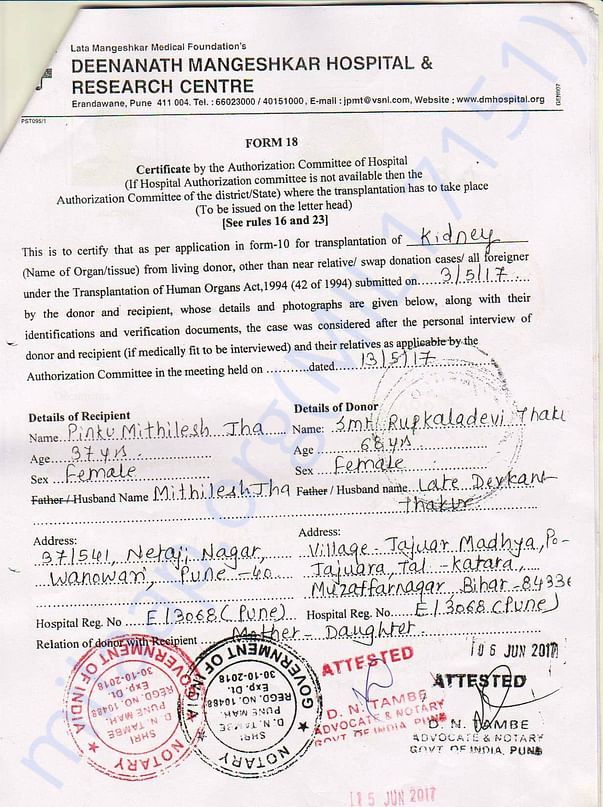 Lata Mangeshkar Medical Foundation's
DEENANATH MANGESHKAR HOSPITAL &
RESEARCH CENTRE
Erandawane, Pune 411 004. Tel. : 66023000 / 40151000, E-mail : jpmt@vsnl.com, Website : www.dmhospital.org
PST095/1
FORM 18
Certificate by the Authorization Committee of Hospital
(If Hospital Authorization committee is not available then the
Authorization Committee of the district/State) where the transplantation has to take place
(To be issued on the letter head)
[See rules 16 and 23]
This is to certify that as per application in form-10 for transplantation of Kidney
(Name of Organ/tissue) from living donor, other than near relative/ swap donation cases/ all foreigner
under the Transplantation of Human Organs Act,1994 (42 of 1994) submitted on 3/5/17
by the donor and recipient, whose details and photographs are given below, along with their
identifications and verification documents, the case was considered after the personal interview of
donor and recipient (if medically fit to be interviewed) and their relatives as applicable by the
Authorization Committee in the meeting held on ............dated 13/5/17
Details of Recipient
Name Pinku Mithilesh Jha
Age 37 yrs
Sex Female
Father / Husband Name Mithilesh Jha
Details of Donor
Name: Smt. Rupkaladevi Thaku
Age 68 yrs
Sex Female
Father / Husband name Late Devkant
Thakur
Address:
37/541, Netaji Nagar,
Wanowari, Pune - 40
Hospital Reg. No E/3068 (Pune)
Address:
Village - Jajuar Madhya, Po-
Jajuara, Tal - katara,
Muzaffarnagar, Bihar - 84336
Hospital Reg. No. E/3068 (Pune)
Relation of donor with Recipient Mother - Daughter
NOTARY
GOVERNMENT OF INDIA
SHRI
D. N. TAMBE
PUNE MAH.
REGD. NO. 10488
Exp. Dt.
30-10-2018
NOTARY
GOVERNMENT OF INDIA
SHRI
D. N. TAMBE
PUNE MAH.
REGD. NO. 10488
Exp. Dt.
30-10-2018
ATTESTED
D. N. TAMBE
ADVOCATE & NOTARY
GOVT. OF INDIA, PUNE
05 JUN 2017
ATTESTED
D. N. TAMBE
ADVOCATE & NOTARY
GOVT. OF INDIA, PUNE
15 JUN 2017